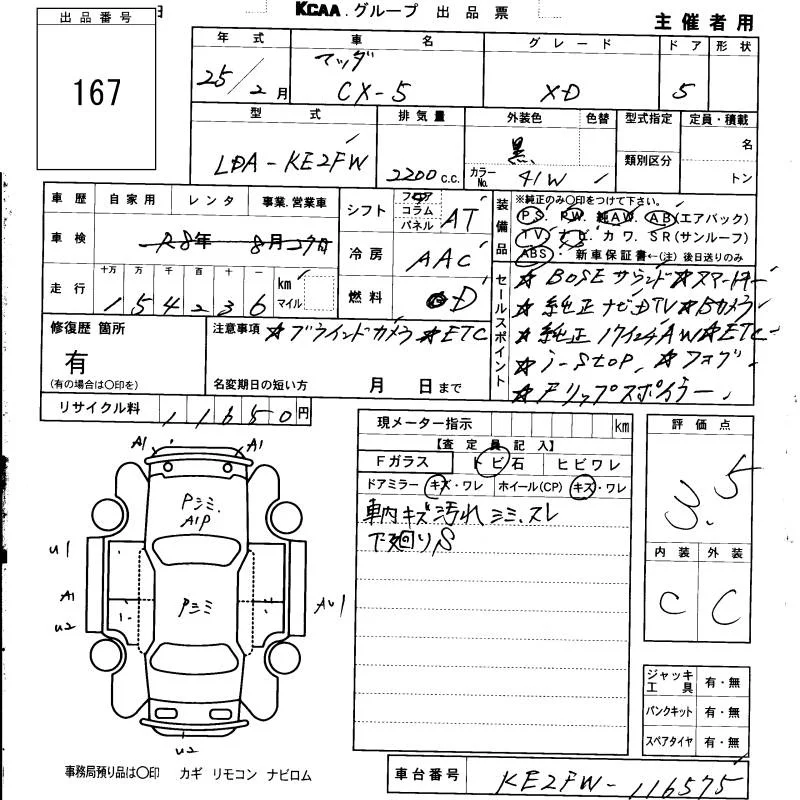 KCAA.グループ 出品票
主催者用
出品番号
167
年式 車名 グレード ドア 形状
25/2月 マツダ CX-5 XD 5
型式 排気量 外装色 色替 型式指定 定員・積載
LDA-KE2FW 2200c.c. 黒 カラーNo. 41W 類別区分 名 トン
車歴 自家用 レンタ 事業.営業車
車検 R8年 8月27日
走行 十万 万 千 百 十 一
154236 km マイル
シフト フロア コラム パネル AT
冷房 AAC
燃料 D
装備品 ※純正のみ○印をつけて下さい。
PS. PW. 純AW. AB(エアバック)
TV. ナビ. カワ. SR(サンルーフ)
ABS・ 新車保証書←(注)後日送りのみ
セールスポイント
☆BOSEサウンド☆スマートキー
☆純正ナビDTV☆Bカメラ
☆純正17インチAW☆ETC
☆i-stop. ☆フォグ
☆Fリップスポイラー
修復歴 箇所
有
(有の場合は○印を)
注意事項 ☆ブラインドカメラ ☆ETC
名変期日の短い方 月 日まで
リサイクル料 11650円
現メーター指示 km
【査定員記入】
Fガラス トビ石 ヒビワレ
ドアミラー キズ・ワレ ホイール(CP) キズ・ワレ
車内キズ汚れシミ.スレ
下廻りS
評価点
3.5
内装 外装
C C
A1 A1
Pシミ.
A1P
U1
Pシミ
A1
U2
AU1
U2
ジャッキ工具 有・無
パンクキット 有・無
スペアタイヤ 有・無
事務局預り品は○印 カギ リモコン ナビロム
車台番号 KE2FW-116575